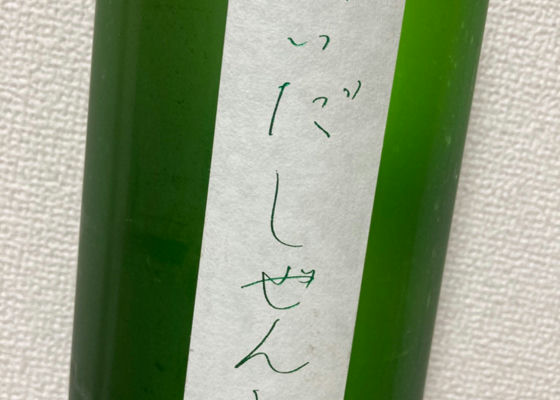 いだしぜん